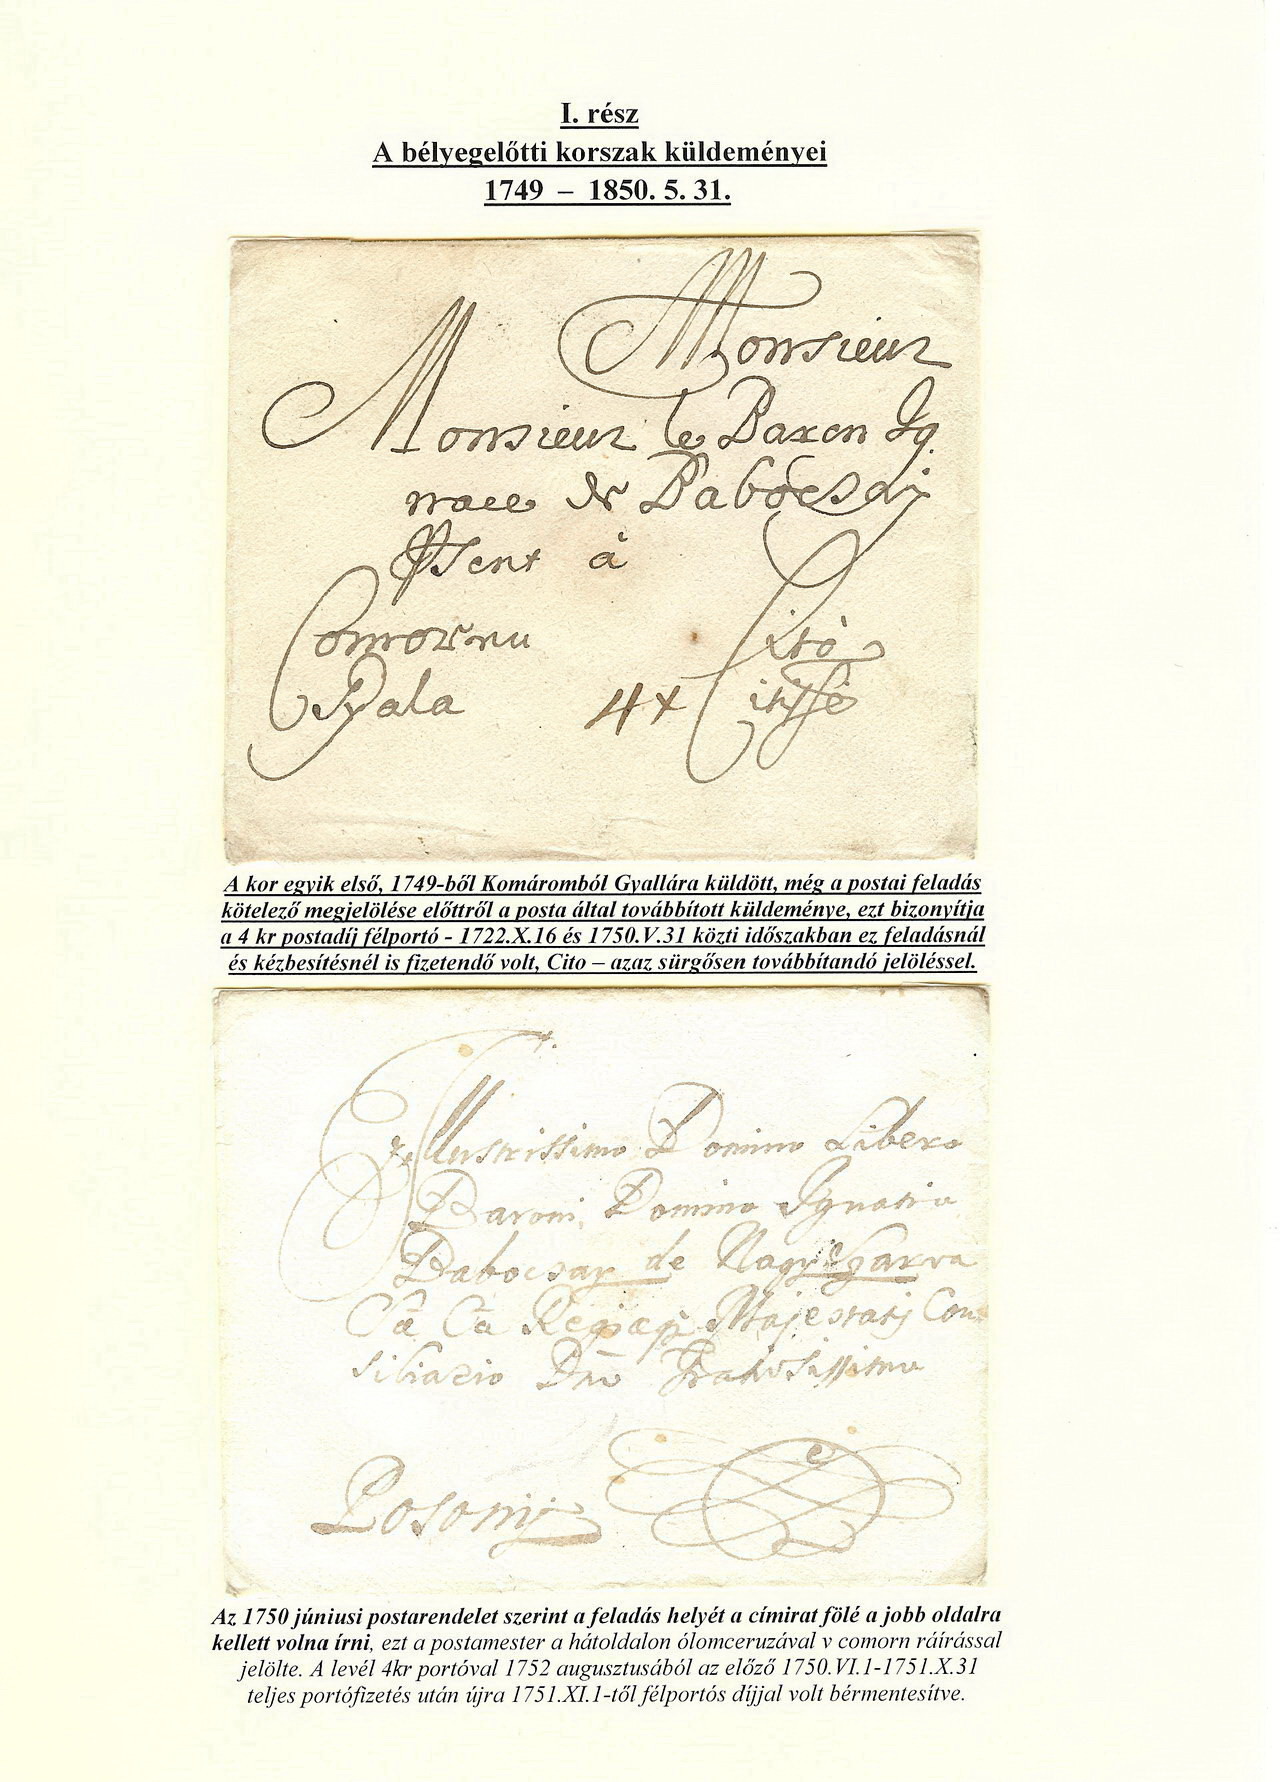 I. rész
A bélyegelőtti korszak küldeményei
1749 – 1850. 5. 31.
Monsieur
Monsieur le Baron Ig
nace de Babócsay
Present à
Comornu Cito
Gyala 4x citissè
A kor egyik első, 1749-ből Komáromból Gyallára küldött, még a postai feladás
kötelező megjelölése előttről a posta által továbbított küldeménye, ezt bizonyítja
a 4 kr postadíj félportó - 1722.X.16 és 1750.V.31 közti időszakban ez feladásnál
és kézbesítésnél is fizetendő volt, Cito – azaz sürgősen továbbítandó jelöléssel.
Illustrissimo Domino Libero
Baroni Domino Ignatio
Babocsay de Nagy
Sæ Cæ Regiæq Majestatis Con
siliario Dno Gratiosissimo
Posonij
Az 1750 júniusi postarendelet szerint a feladás helyét a címirat fölé a jobb oldalra
kellett volna írni, ezt a postamester a hátoldalon ólomceruzával v comorn ráírással
jelölte. A levél 4kr portóval 1752 augusztusából az előző 1750.VI.1-1751.X.31
teljes portófizetés után újra 1751.XI.1-től félportós díjjal volt bérmentesítve.